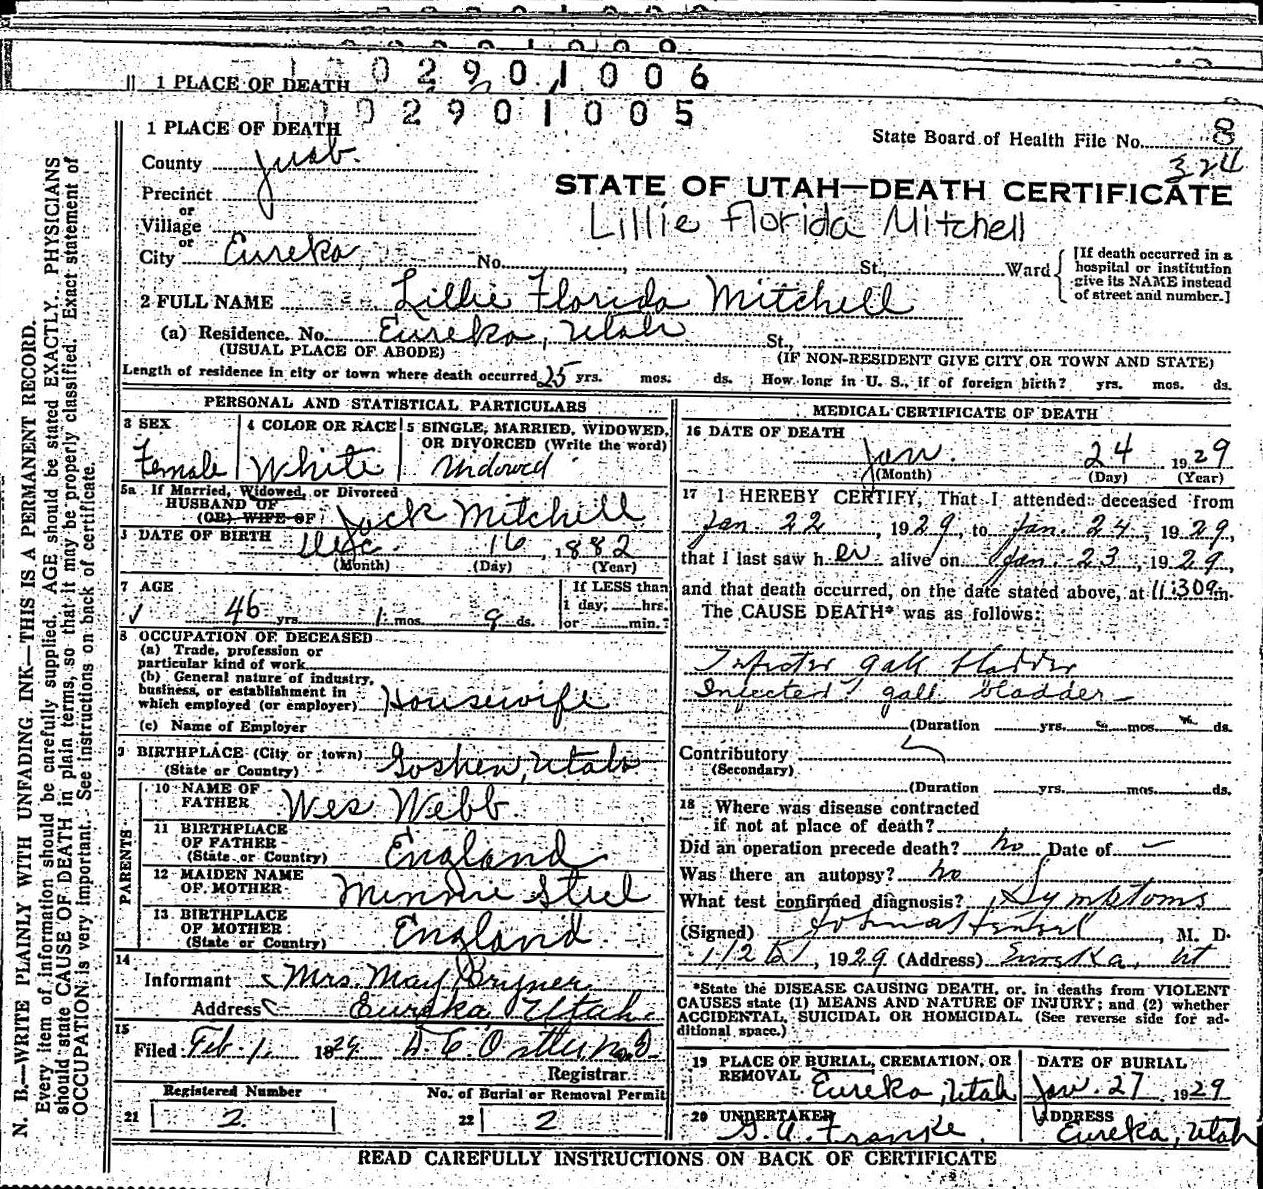 1 PLACE OF DEATH 02901006
02901005
1 PLACE OF DEATH
State Board of Health File No. 8
324
County Juab.
STATE OF UTAH—DEATH CERTIFICATE
Precinct
or
Village
Lillie Florida Mitchell
or
City Eureka, No. , St., Ward
[If death occurred in a hospital or institution give its NAME instead of street and number.]
2 FULL NAME Lillie Florida Mitchell
(a) Residence. No. Eureka, Utah St.,
(USUAL PLACE OF ABODE) (IF NON-RESIDENT GIVE CITY OR TOWN AND STATE)
Length of residence in city or town where death occurred 25 yrs. mos. ds. How long in U. S., if of foreign birth? yrs. mos. ds.
PERSONAL AND STATISTICAL PARTICULARS
3 SEX Female
4 COLOR OR RACE White
5 SINGLE, MARRIED, WIDOWED, OR DIVORCED (Write the word)
Widowed
5a If Married, Widowed, or Divorced
HUSBAND OF
(OR) WIFE OF Jack Mitchell
DATE OF BIRTH Dec. 16, 1882
(Month) (Day) (Year)
7 AGE
46 yrs. 1 mos. 9 ds.
If LESS than
1 day, hrs.
or min.?
8 OCCUPATION OF DECEASED
(a) Trade, profession or
particular kind of work
(b) General nature of industry,
business, or establishment in
which employed (or employer) Housewife
(c) Name of Employer
9 BIRTHPLACE (City or town) Goshen, Utah
(State or Country)
PARENTS
10 NAME OF
FATHER Wes Webb
11 BIRTHPLACE
OF FATHER
(State or Country) England
12 MAIDEN NAME
OF MOTHER Minnie Steel
13 BIRTHPLACE
OF MOTHER
(State or Country) England
14
Informant Mrs. May Bryner
Address Eureka Utah.
15
Filed Feb. 1, 1929
Registrar
Registered Number
21 2
No. of Burial or Removal Permit
22 2
MEDICAL CERTIFICATE OF DEATH
16 DATE OF DEATH
Jan. 24 1929
(Month) (Day) (Year)
17 I HEREBY CERTIFY, That I attended deceased from
Jan. 22, 1929, to Jan. 24, 1929,
that I last saw her alive on Jan. 23, 1929,
and that death occurred, on the date stated above, at 11:30 m.
The CAUSE DEATH* was as follows:
gall bladder
gall bladder
(Duration yrs. mos. ds.
Contributory
(Secondary)
(Duration yrs. mos. ds.
18 Where was disease contracted
if not at place of death?
Did an operation precede death? No Date of —
Was there an autopsy? No
What test confirmed diagnosis? Symptoms
(Signed) , M. D.
1929 (Address) Eureka, Ut
*State the DISEASE CAUSING DEATH, or, in deaths from VIOLENT
CAUSES state (1) MEANS AND NATURE OF INJURY; and (2) whether
ACCIDENTAL, SUICIDAL OR HOMICIDAL. (See reverse side for ad-
ditional space.)
19 PLACE OF BURIAL, CREMATION, OR
REMOVAL Eureka, Utah
DATE OF BURIAL
Jan. 27 1929
20 UNDERTAKER
G. A. Franke.
ADDRESS
Eureka, Utah
READ CAREFULLY INSTRUCTIONS ON BACK OF CERTIFICATE
N. B.—WRITE PLAINLY WITH UNFADING INK—THIS IS A PERMANENT RECORD.
Every item of information should be carefully supplied. AGE should be stated EXACTLY. PHYSICIANS
should state CAUSE OF DEATH in plain terms, so that it may be properly classified. Exact statement of
OCCUPATION is very important. See instructions on back of certificate.